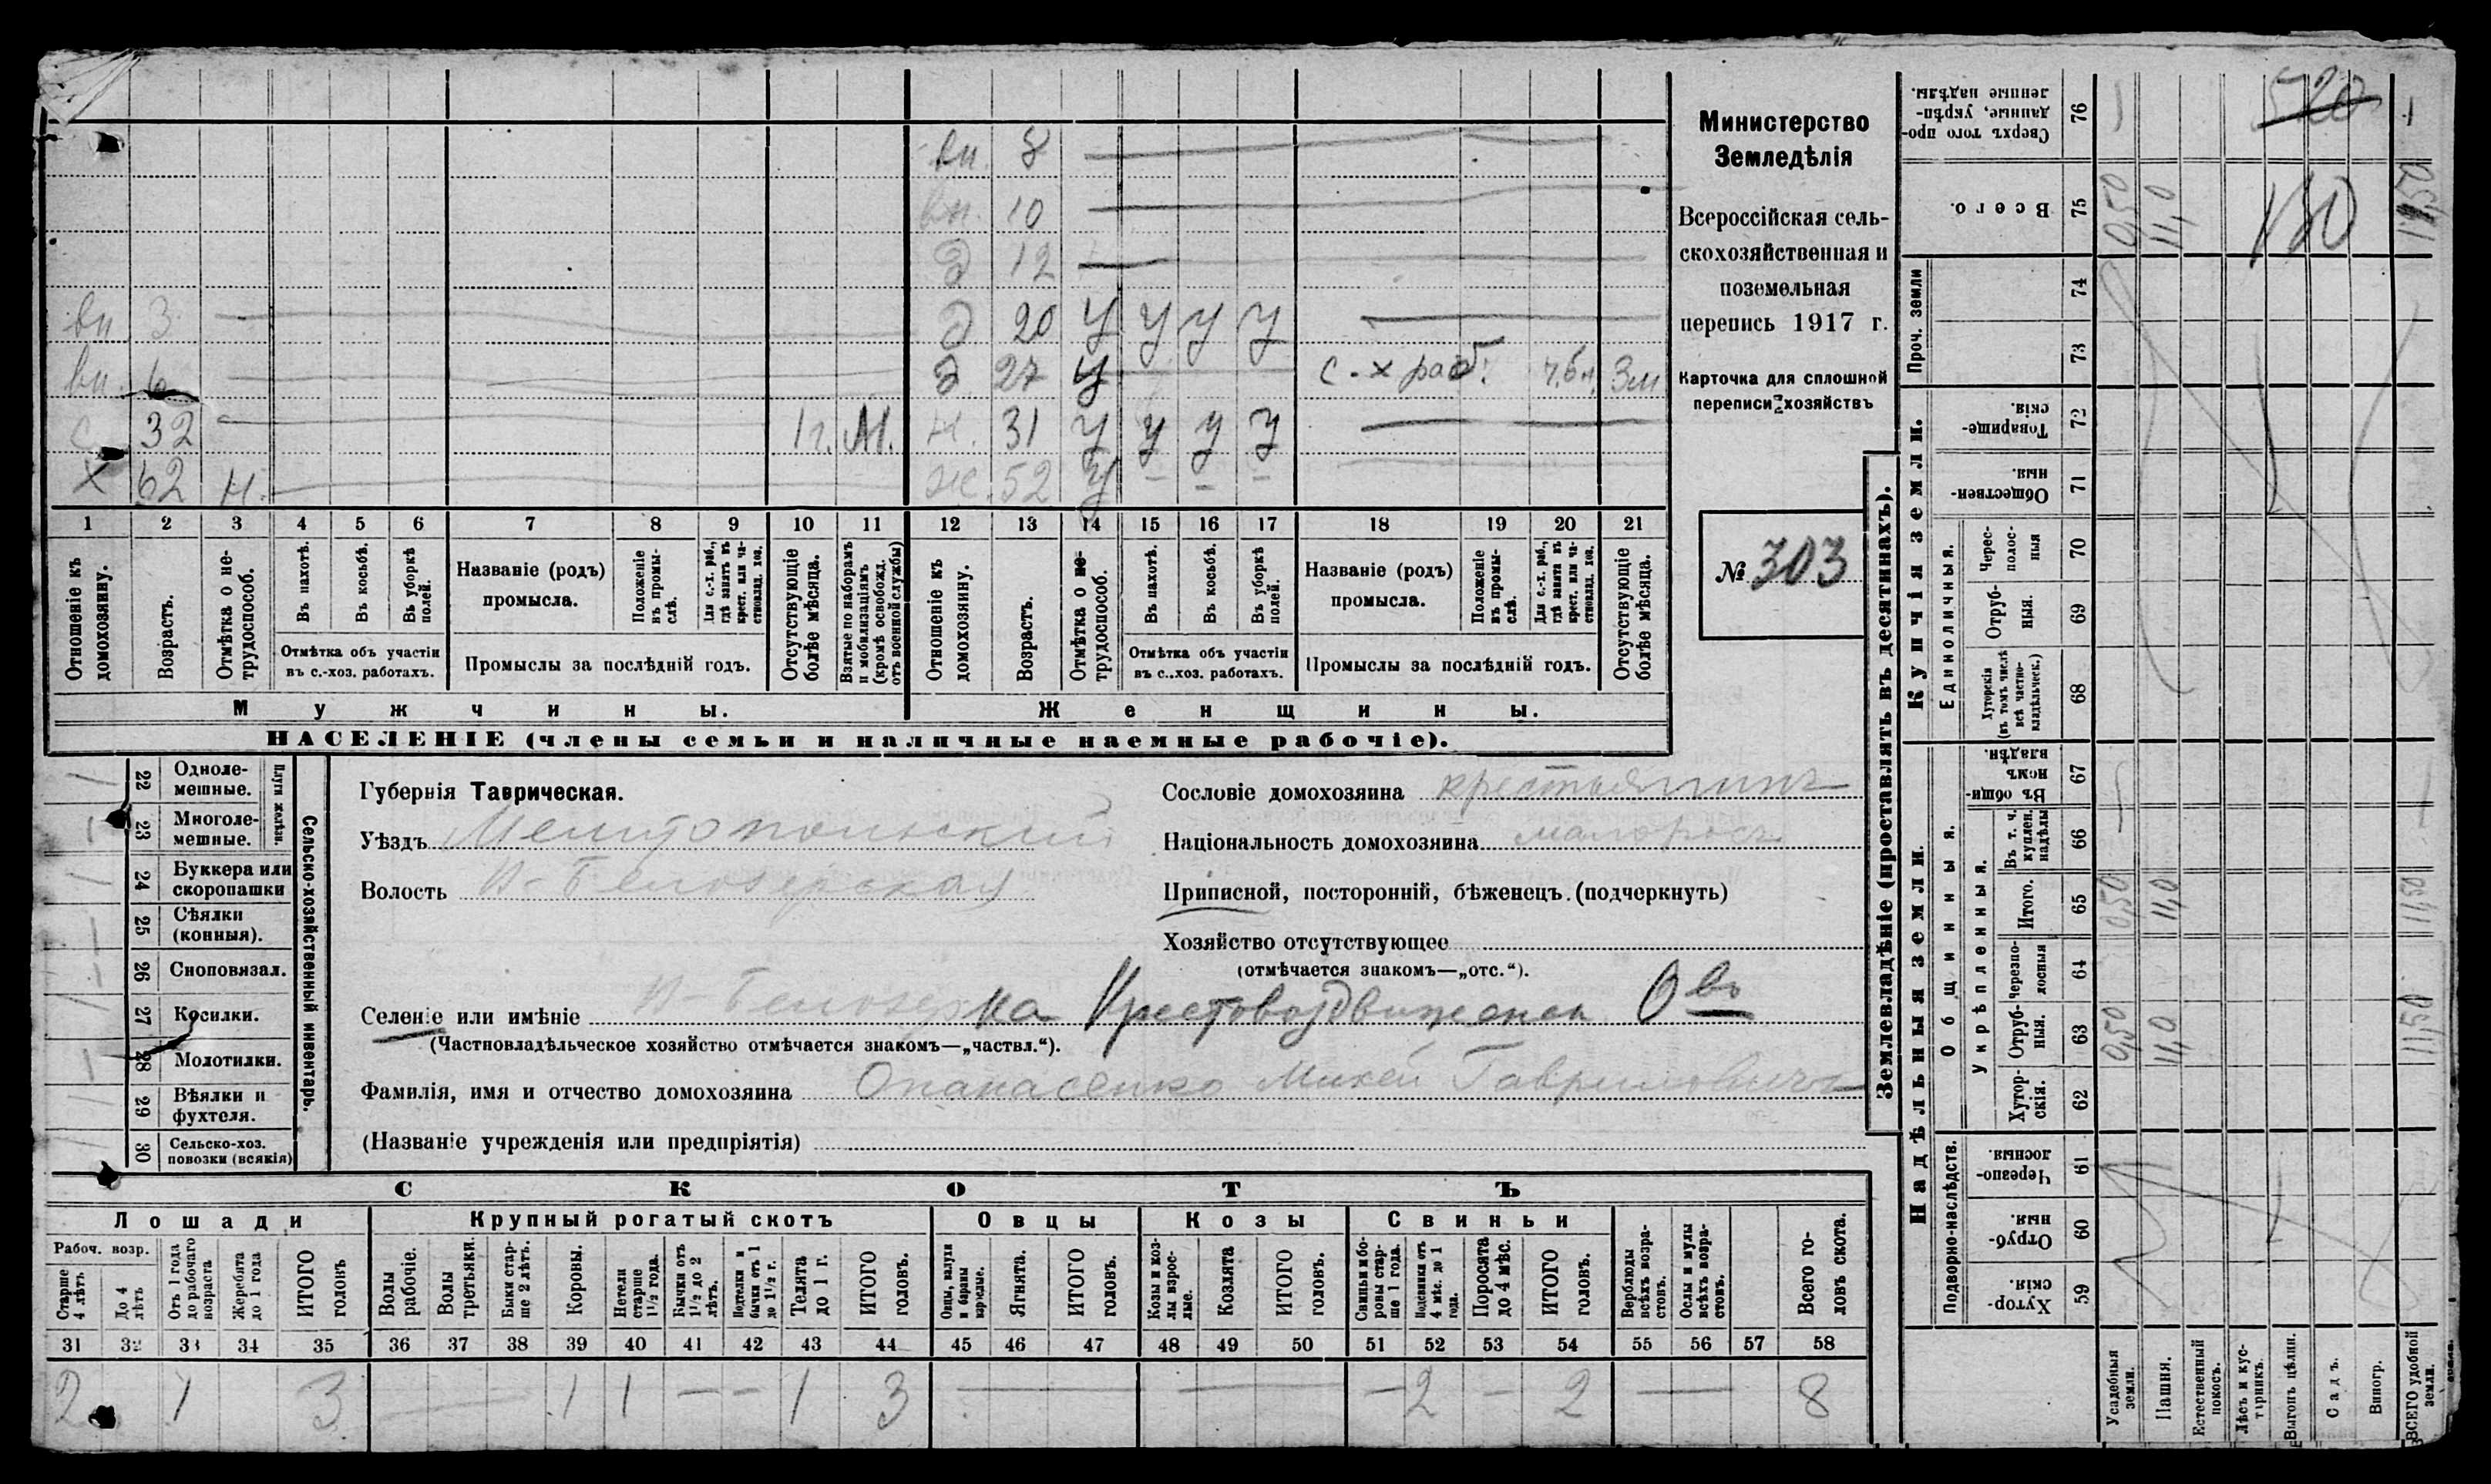 вн. 8
вн. 10
д 12
вн 3 д 20 у у у у
вн. 6 д 27 у с.-х раб. 3м
с 32 1 г. М. н. 31 у у у у
х 62 н. ж. 52 у – – –
1 2 3 4 5 6 7 8 9 10 11 12 13 14 15 16 17 18 19 20 21
Отношеніе къ домохозяину.
Возрастъ.
Отмѣтка о не-трудоспособ.
Въ пахотѣ.
Въ косьбѣ.
Въ уборкѣ полей.
Отмѣтка объ участіи
въ с.-хоз. работахъ.
Названіе (родъ)
промысла.
Положеніе въ промы-слѣ.
Для с.-х. раб., гдѣ занятъ въ крест. или ча-стновлад. хоз.
Промыслы за послѣдній годъ.
Отсутствующіе болѣе мѣсяца.
Взятые по наборамъ и мобилизаціямъ (кромѣ освобожд. отъ военной службы)
Отношеніе къ домохозяину.
Возрастъ.
Отмѣтка о не-трудоспособ.
Въ пахотѣ.
Въ косьбѣ.
Въ уборкѣ полей.
Отмѣтка объ участіи
въ с..хоз. работахъ.
Названіе (родъ)
промысла.
Положеніе въ промы-слѣ.
Для с.-х. раб., гдѣ занята въ крест. или ча-стновлад. хоз.
Промыслы за послѣдній годъ.
Отсутствующіе болѣе мѣсяца.
Мужчины. Женщины.
НАСЕЛЕНІЕ (члены семьи и наличные наемные рабочіе).
Министерство
Земледѣлія
Всероссійская сель-
скохозяйственная и
поземельная
перепись 1917 г.
Карточка для сплошной
переписи хозяйствъ
№ 303
22 Одноле-мешные.
23 Многоле-мешные.
Плуги желѣзн.
24 Буккера или скоропашки
25 Сѣялки (конныя).
26 Сноповязал.
27 Косилки.
28 Молотилки.
29 Вѣялки и фухтеля.
30 Сельско-хоз. повозки (всякія)
Сельско-хозяйственный инвентарь.
Губернія Таврическая.
Уѣздъ Мелитопольскій
Волость В-Белозерская
Сословіе домохозяина крестьянинъ
Національность домохозяина малороссъ
Приписной, посторонній, бѣженецъ. (подчеркнуть)
Хозяйство отсутствующее
(отмѣчается знакомъ—„отс.“).
Селеніе или имѣніе В-Белозерка Крестовоздвиженск О во
(Частновладѣльческое хозяйство отмѣчается знакомъ—„частвл.“).
Фамилія, имя и отчество домохозяина Опанасенко Михей Гавриловичъ
(Названіе учрежденія или предпріятія)
СКОТЪ
Лошади Крупный рогатый скотъ Овцы Козы Свиньи
Рабоч. возр.
Старше 4 лѣтъ
До 4 лѣтъ
Отъ 1 года до рабочаго возраста
Жеребята до 1 года
ИТОГО головъ
Волы рабочіе.
Волы третьяки.
Быки стар-ше 2 лѣтъ.
Коровы.
Нетели старше 1½ года.
Бычки отъ 1½ до 2 лѣтъ.
Подтелки и бычки отъ 1 до 1½ г.
Телята до 1 г.
ИТОГО головъ.
Овцы, валухи и бараны взрослые.
Ягнята.
ИТОГО головъ.
Козы и коз-лы взрос-лые.
Козлята
ИТОГО головъ.
Свиньи бо-ровы стар-ше 1 года.
Подсвинки отъ 4 мѣс. до 1 года.
Поросята до 4 мѣс.
ИТОГО головъ.
Верблюды всѣхъ возра-стовъ.
Ослы и мулы всѣхъ возра-стовъ.
Всего го-ловъ скота.
31 32 33 34 35 36 37 38 39 40 41 42 43 44 45 46 47 48 49 50 51 52 53 54 55 56 57 58
2 1 3 – 1 1 – – 1 3 – – – 2 – 2 – 8
Землевладѣніе (проставлять въ десятинахъ).
Надѣльныя земли. Купчія земли. Проч. земли
Подворно-наслѣдств.
Общинныя.
Укрѣпленныя.
Единоличныя.
Хутор-скія. 59
Отруб-ныя. 60
Черезпо-лосныя. 61
Хутор-скія. 62
Отруб-ныя. 63
Черезпо-лосныя 64
Итого. 65
Въ т. ч. куплен. надѣлы 66
Въ общи-номъ владѣн. 67
Хуторскія (въ томъ числѣ всѣ частно-владѣльческ.) 68
Отруб-ныя. 69
Черес-полос-ныя 70
Обществен-ныя. 71
Товарище-скія. 72
73
74
Всего. 75
Сверхъ того про-данные, укрѣп-ленные надѣлы. 76
Усадебныя земли. 0,50 0,50 0,50
Пашня. 11,0 11,0 11,0
Естественный покосъ.
Лѣсъ и кус-тарникъ.
Выгонъ цѣлин.
Садъ.
Виногр.
ВСЕГО удобной земли. 11,50 11,50 11,50
520
130